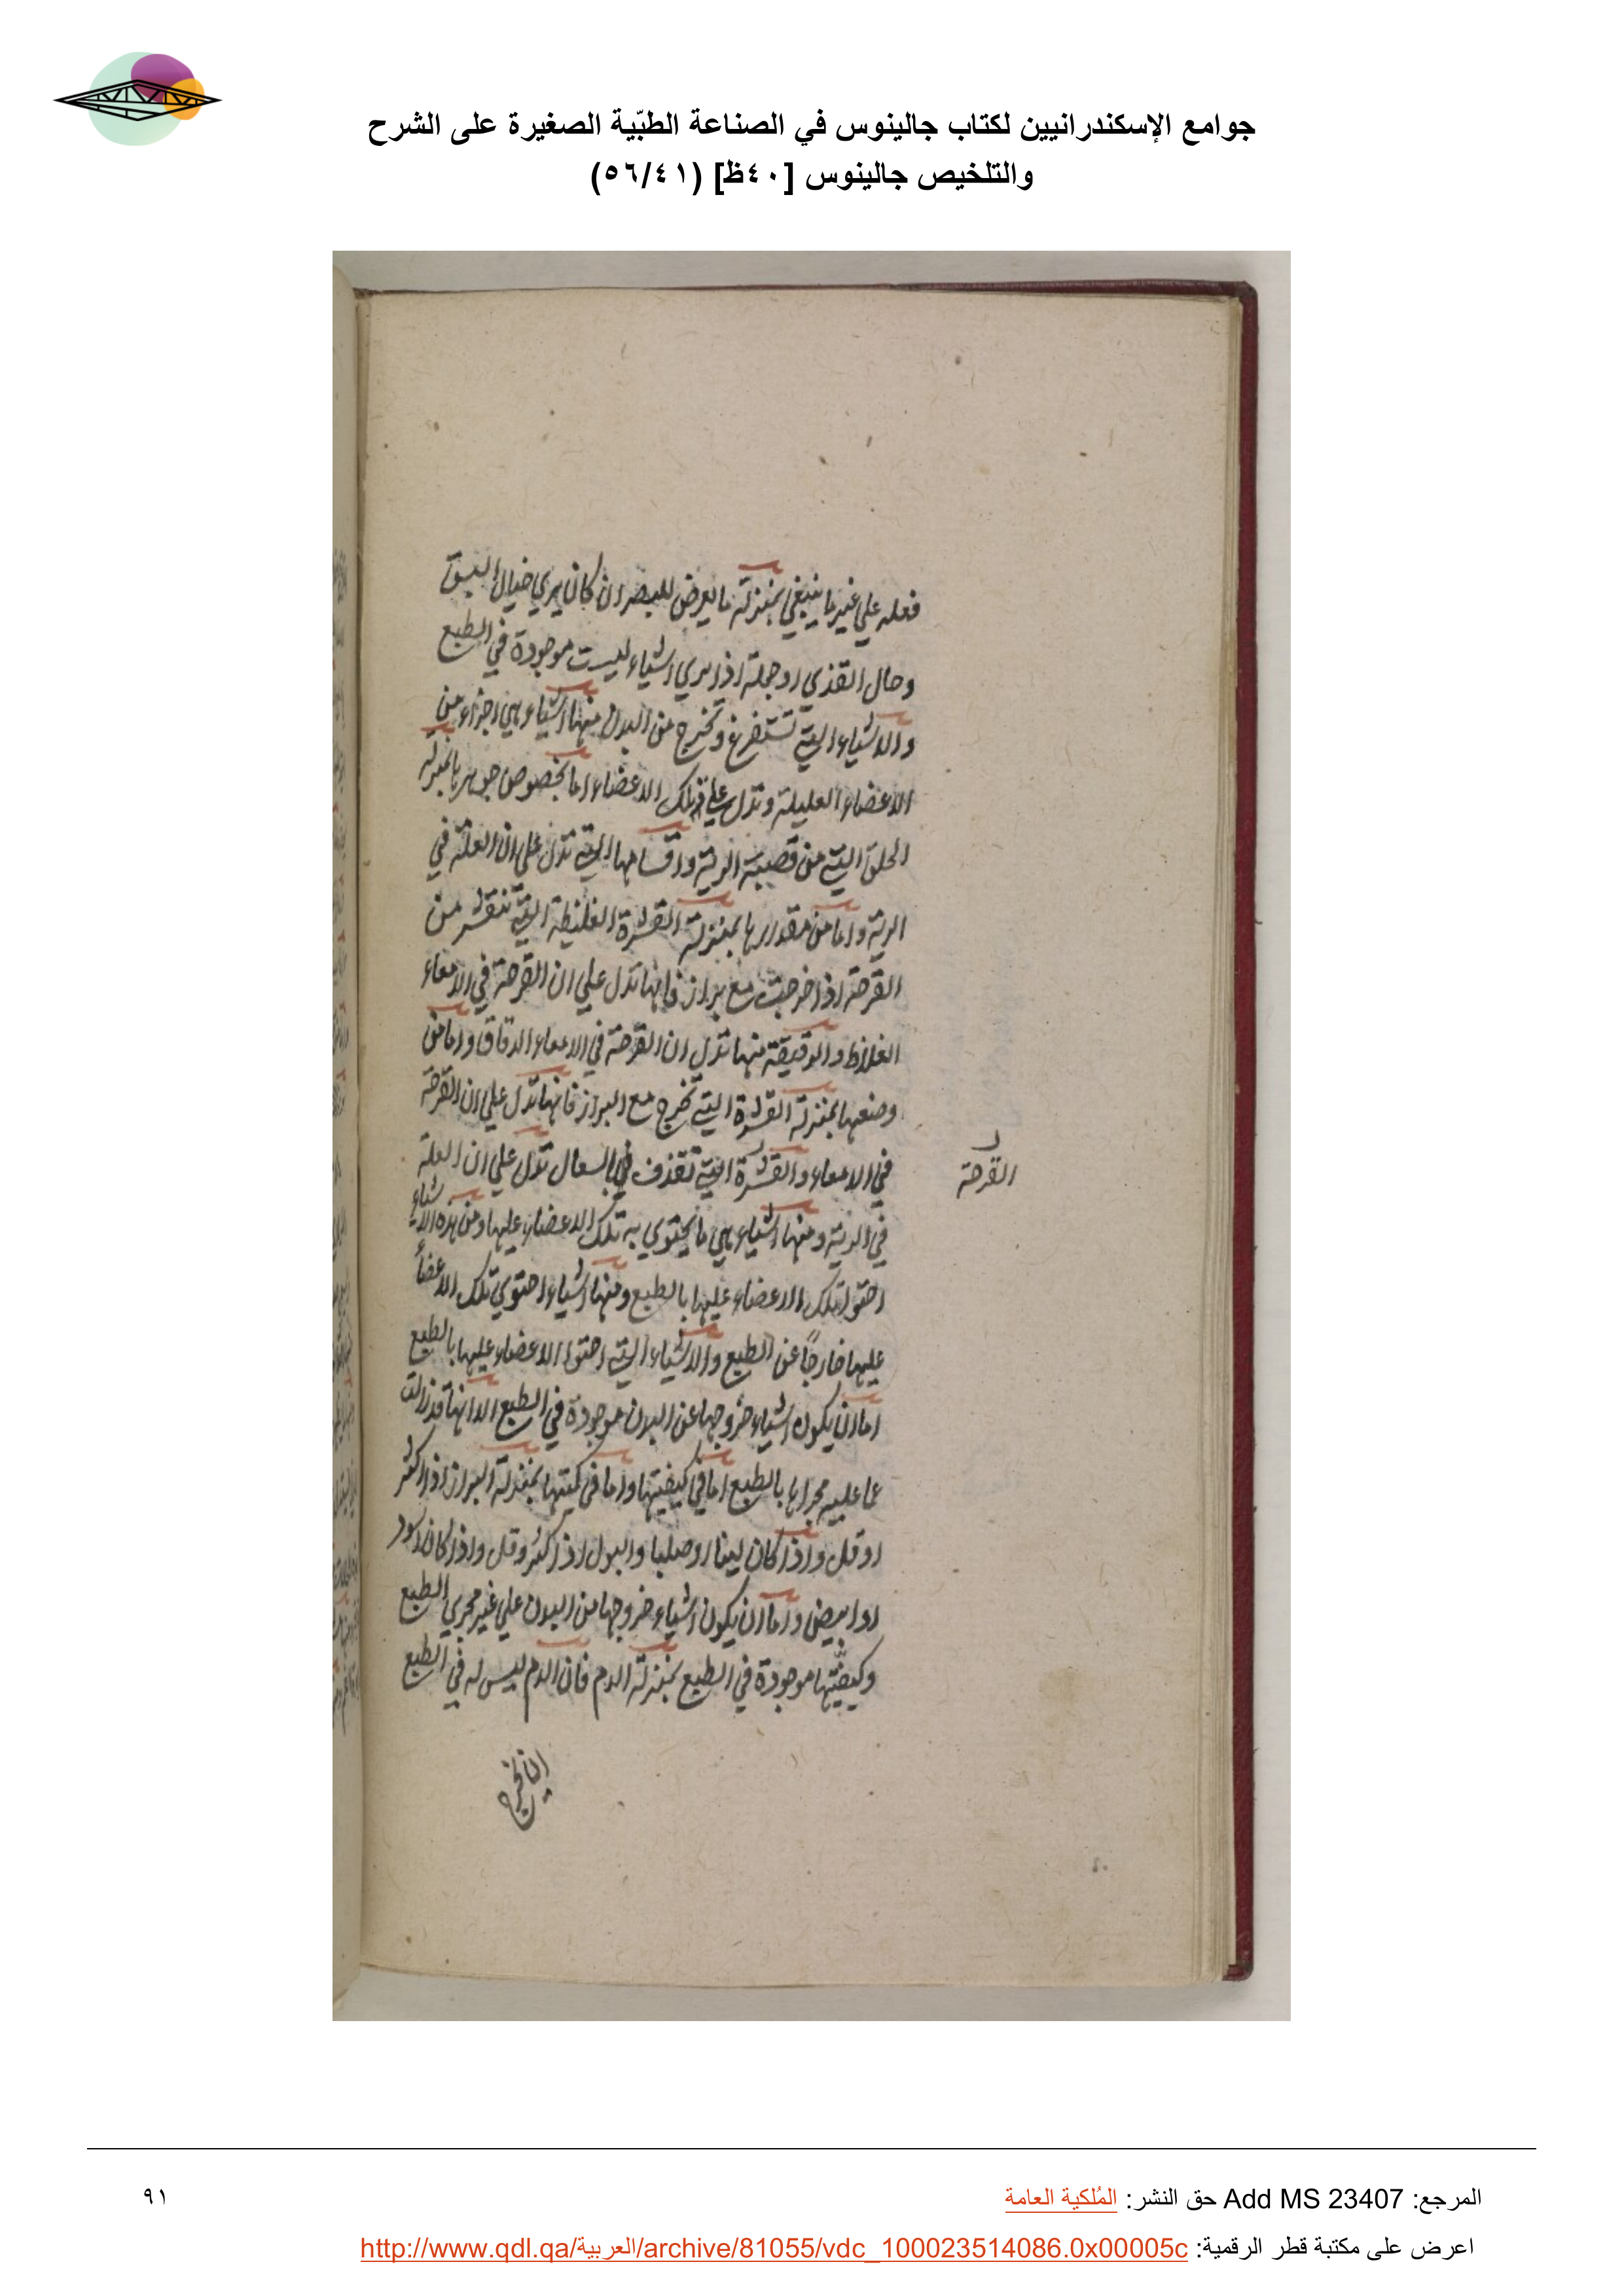 جوامع الإسكندرانيين لكتاب جالينوس في الصناعة الطبّية الصغيرة على الشرح
والتلخيص جالينوس [٤٠ظ] (٥٦/٤١)
فعله علي غير ما ينبغي بمنزلة ما يعرض للبصر ان كان يري خيال البق
وحال القذي او جملة اذا يري اشياء ليست موجودة في الطبع
والاشياء التي تستفرغ وتخرج من البدن منها اشياء هي اجزاء من
الاعضاء العليلة وتدل علي تلك الاعضاء اما بخصوص جوهرها بمنزلة
الحلق التي من قصبة الرية واقسامها التي تدل علي ان العلة في
الرية واما من مقدارها بمنزلة القشرة الغليظة التي تنقشر من
القرحة اذا خرجت مع براز فانها تدل علي ان القرحة في الامعاء
الغلاظ والدقيقة منها تدل ان القرحة في الامعاء الدقاق واما من
وضعها بمنزلة القشرة التي تخرج مع البراز فانها تدل علي ان القرحة
في الامعاء والقشرة التي تقذف بالسعال تدل علي ان العلة
القرحة
في الرية ومنها اشياء هي ما يحتوي به تلك الاعضاء عليها ومن هذه الاشياء
احتوا تلك الاعضاء عليها بالطبع ومنها اشياء احتوي تلك الاعضاء
عليها خارجاً عن الطبع والاشياء التي احتوا الاعضاء عليها بالطبع
اما ان يكون اشياء خروجها عن البدن موجودة في الطبع الا انها قد زالت
عما عليه مجراها بالطبع اما في كيفيتها واما في كميتها بمنزلة البراز اذا كثر
او قل واذا كان لينا او صلبا والبول اذا كثر وقل واذا كان اسود
او ابيض واما ان يكون اشياء خروجها من البدن علي غير مجري الطبع
وكيفيتها موجودة في الطبع بمنزلة الدم فان الدم ليس له في الطبع
ان يخرج
المرجع: Add MS 23407 حق النشر: المُلكية العامة
٩١
اعرض على مكتبة قطر الرقمية: http://www.qdl.qa/العربية/archive/81055/vdc_100023514086.0x00005c